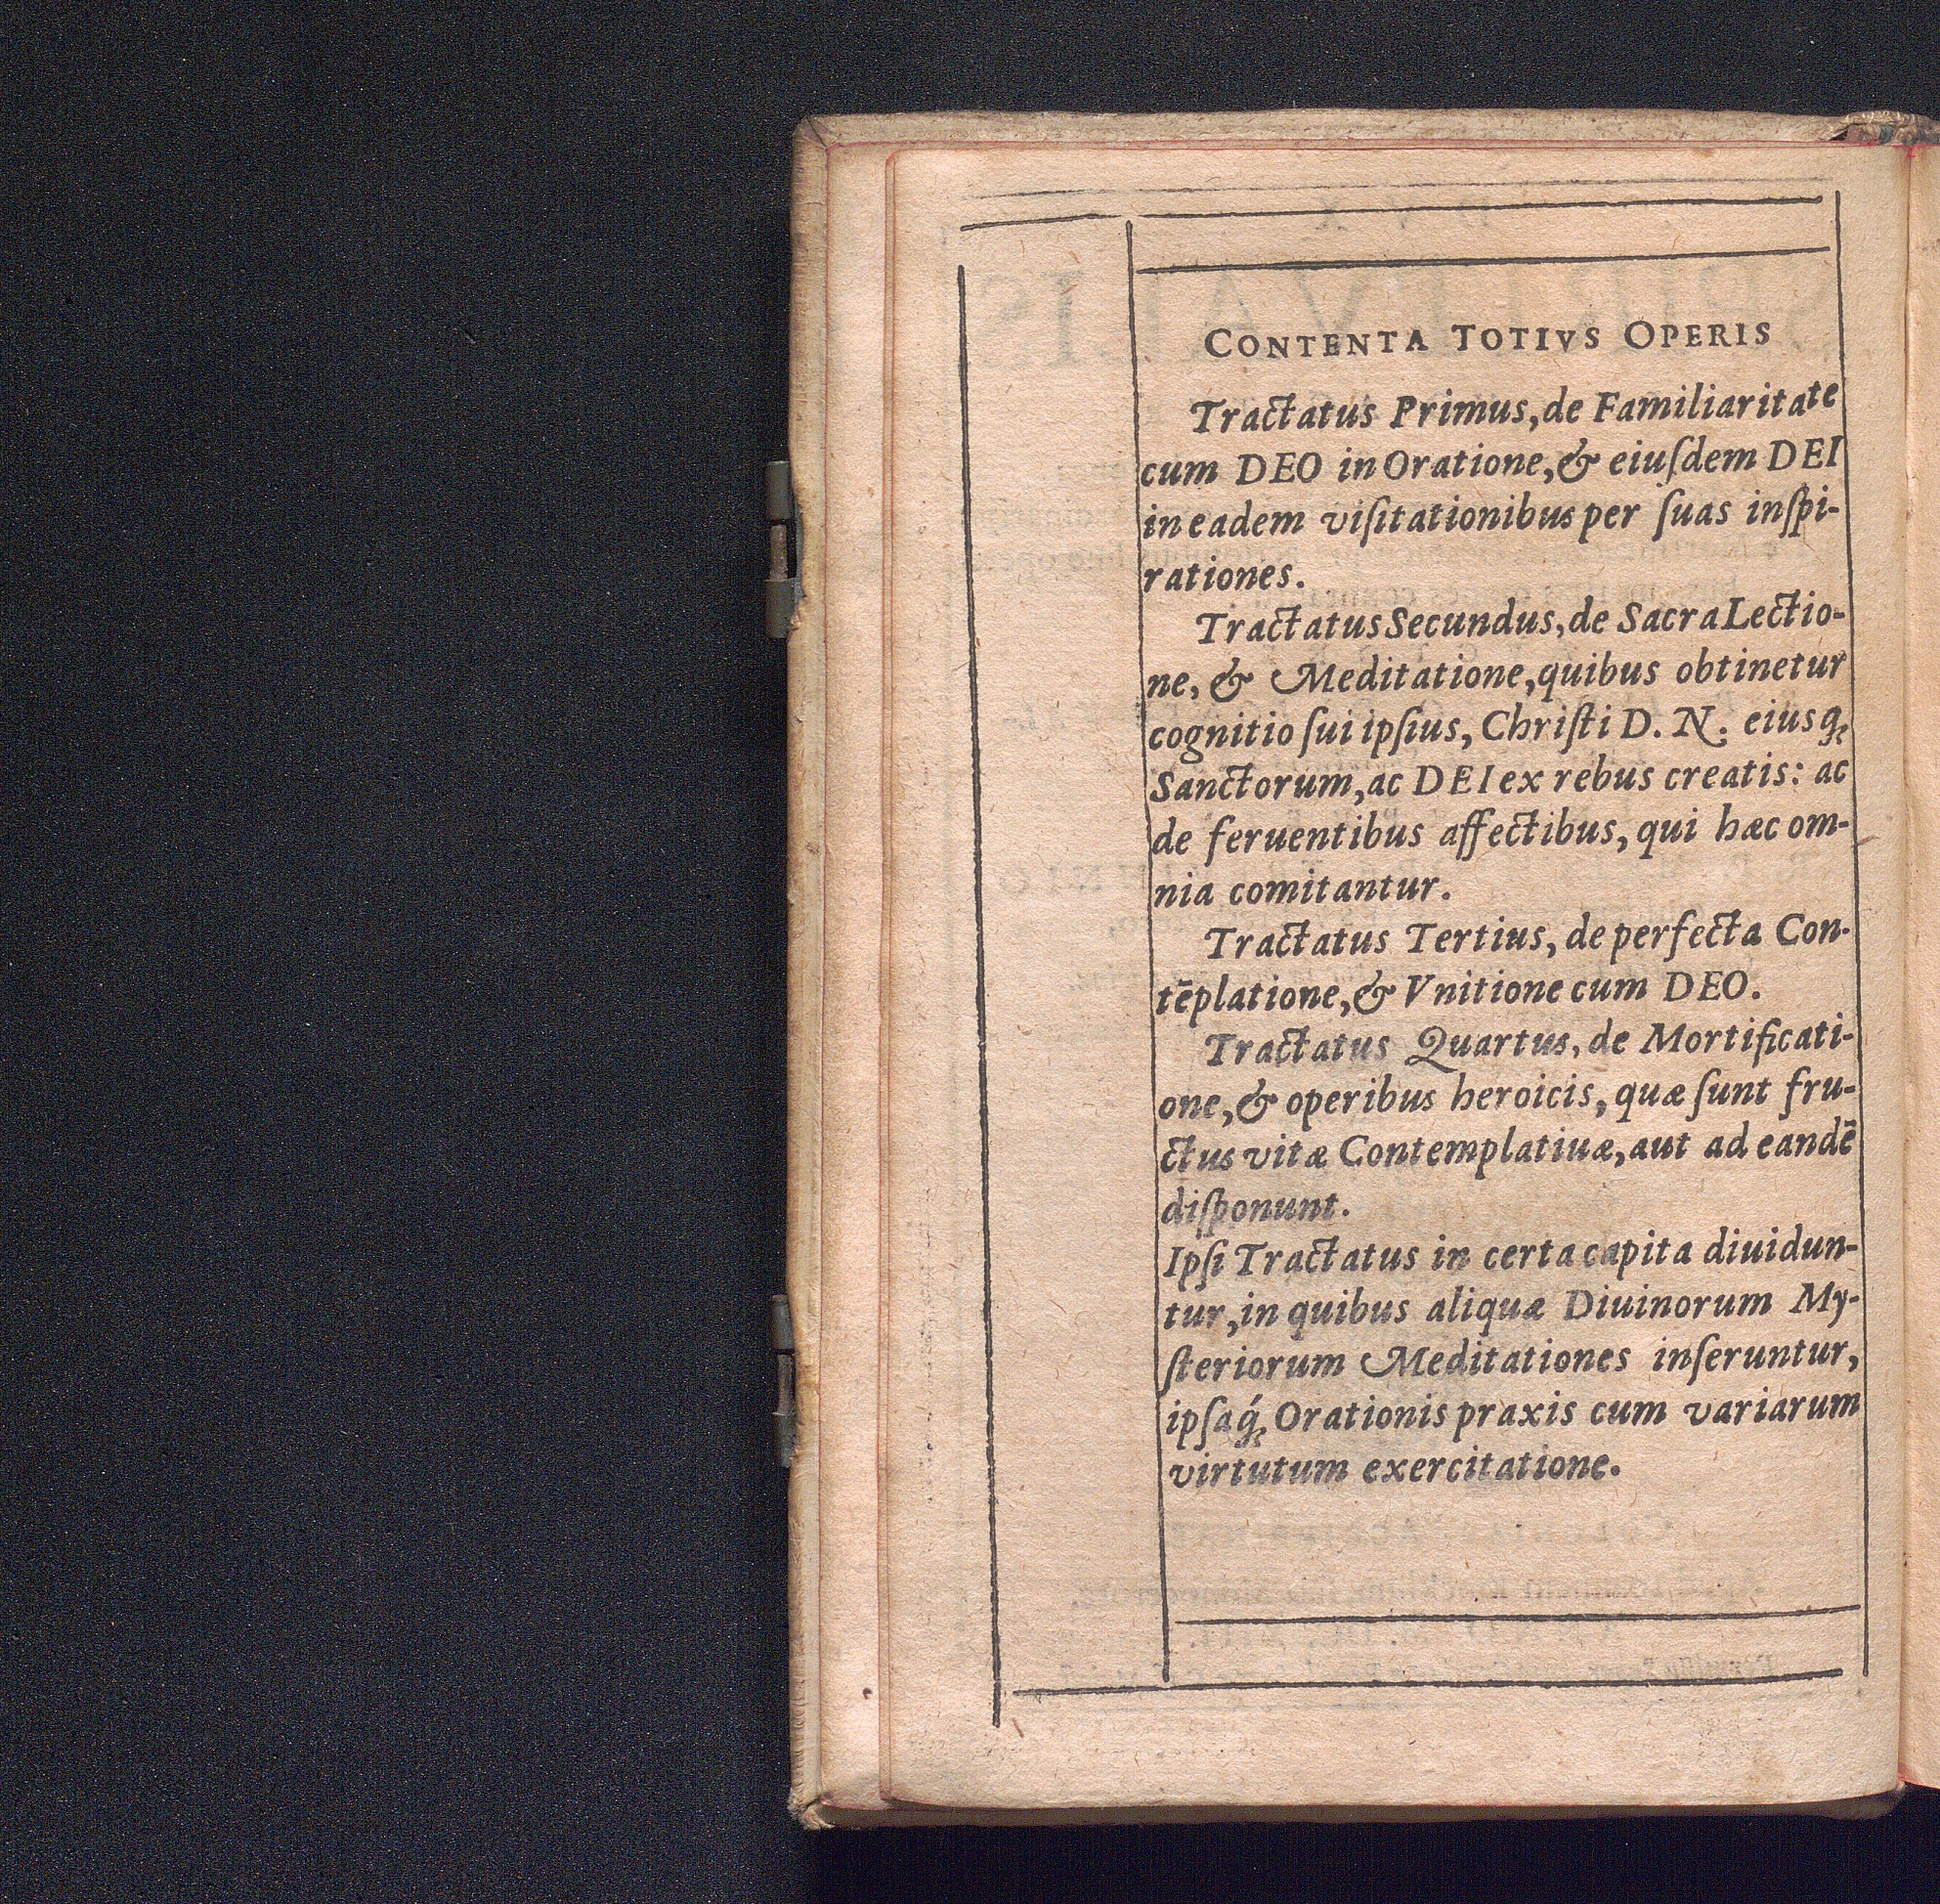 CONTENTA TOTIVS OPERIS
Tractatus Primus, de Familiaritate
cum DEO in Oratione, & eiuſdem DEI
in eadem viſitationibus per ſuas inſpi-
rationes.
Tractatus Secundus, de Sacra Lectio-
ne, & Meditatione, quibus obtinetur
cognitio ſui ipſius, Chriſti D. N. eiusq;
Sanctorum, ac DEI ex rebus creatis: ac
de feruentibus affectibus, qui hæc om-
nia comitantur.
Tractatus Tertius, de perfecta Con-
tēplatione, & Vnitione cum DEO.
Tractatus Quartus, de Mortificati-
one, & operibus heroicis, quæ ſunt fru-
ctus vitæ Contemplatiuæ, aut ad eandē
diſponunt.
Ipſi Tractatus in certa capita diuidun-
tur, in quibus aliquæ Diuinorum My-
ſteriorum Meditationes inſeruntur,
ipſaq́; Orationis praxis cum variarum
virtutum exercitatione.